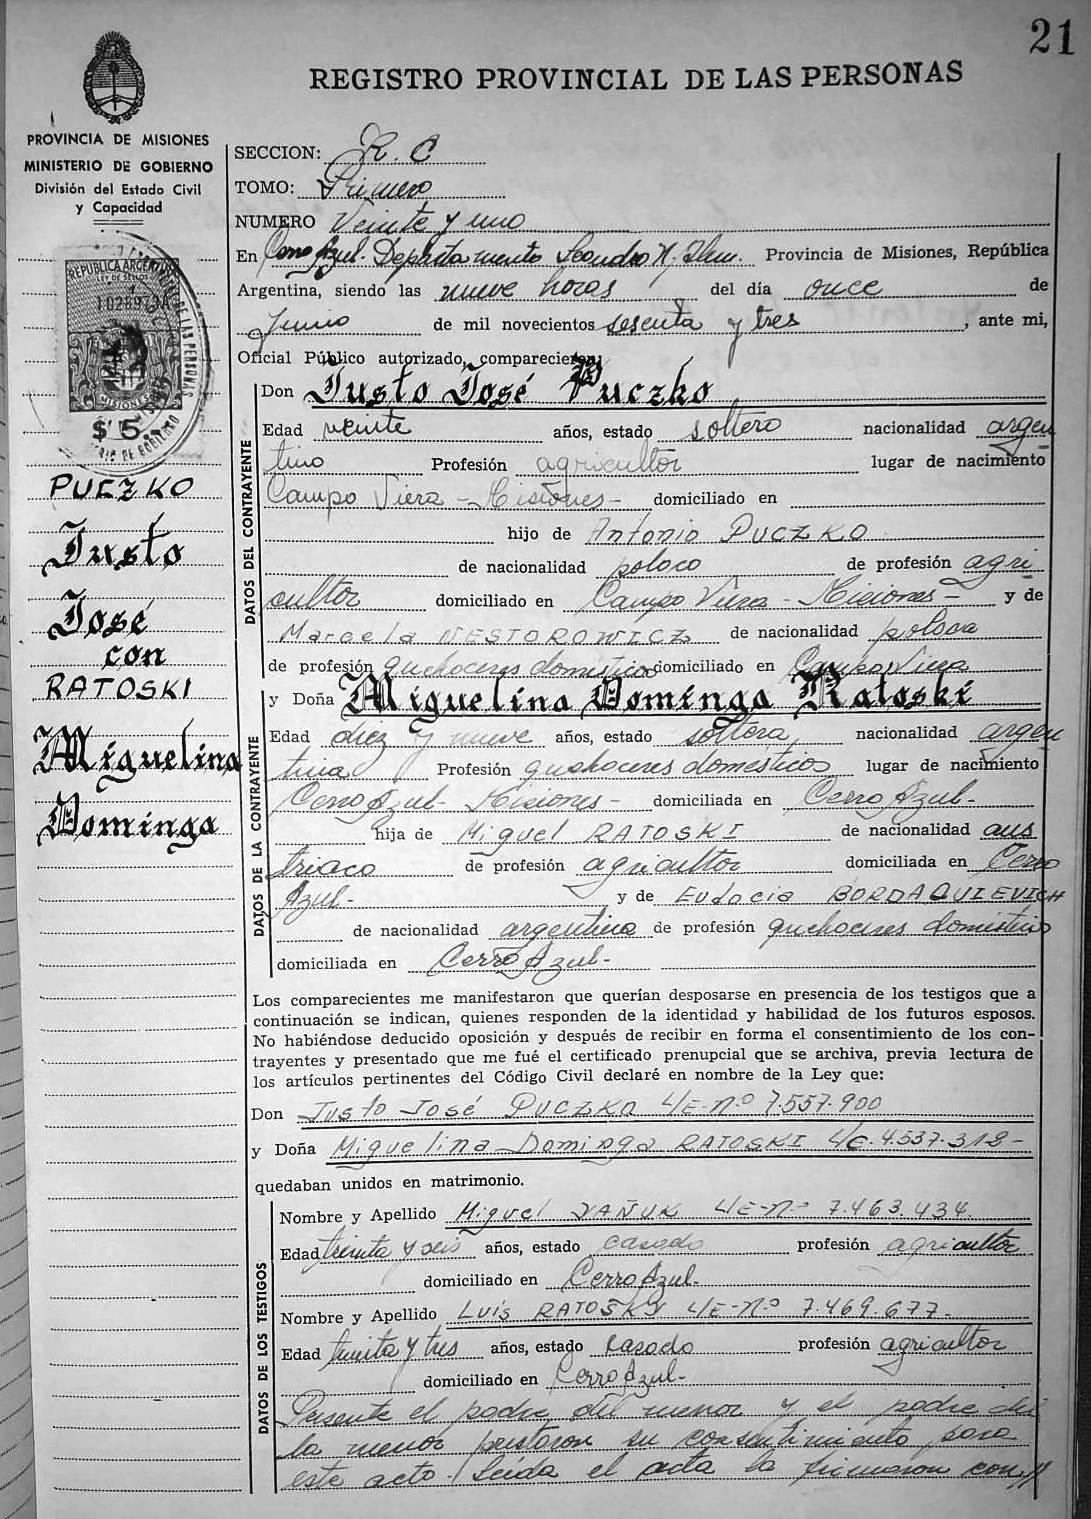 21
REGISTRO PROVINCIAL DE LAS PERSONAS
PROVINCIA DE MISIONES
MINISTERIO DE GOBIERNO
División del Estado Civil
y Capacidad
SECCION: R. C
TOMO: Primero
NUMERO Veinte y uno
En Cerro Azul. Departamento Leandro N. Alem. Provincia de Misiones, República
Argentina, siendo las nueve horas del día once de
Junio de mil novecientos sesenta y tres, ante mi,
Oficial Público autorizado, comparecieron:
REPUBLICA ARGENTINA
LEY DE SELLOS
MISIONES
$ 5.
PUCZKO
Justo
José
con
RATOSKI
Miguelina
Dominga
DATOS DEL CONTRAYENTE
Don Justo José Puczko
Edad veinte años, estado soltero nacionalidad argen
tino Profesión agricultor lugar de nacimiento
Campo Viera - Misiones - domiciliado en
hijo de Antonio PUCZKO
de nacionalidad polaco de profesión agri
cultor domiciliado en Campo Viera - Misiones - y de
Marcela NESTOROWICZ de nacionalidad polaca
de profesión quehaceres domesticos domiciliado en Campo Viera
DATOS DE LA CONTRAYENTE
y Doña Miguelina Dominga Ratoski
Edad diez y nueve años, estado soltera, nacionalidad argen
tina Profesión quehaceres domésticos lugar de nacimiento
Cerro Azul - Misiones - domiciliada en Cerro Azul-
hija de Miguel RATOSKI de nacionalidad aus
triaco de profesión agricultor domiciliada en Cerro
Azul- y de Eudocia BORDAQUIEVICH
de nacionalidad argentina de profesión quehaceres domesticos
domiciliada en Cerro Azul-
Los comparecientes me manifestaron que querían desposarse en presencia de los testigos que a
continuación se indican, quienes responden de la identidad y habilidad de los futuros esposos.
No habiéndose deducido oposición y después de recibir en forma el consentimiento de los con-
trayentes y presentado que me fué el certificado prenupcial que se archiva, previa lectura de
los artículos pertinentes del Código Civil declaré en nombre de la Ley que:
Don Justo José PUCZKO L/E-nº 7.557.900
y Doña Miguelina Dominga RATOSKI L/C. 4.537.318-
quedaban unidos en matrimonio.
DATOS DE LOS TESTIGOS
Nombre y Apellido Miguel YAÑUK L/E-nº 7.463.434.
Edad treinta y seis años, estado casado profesión agricultor
domiciliado en Cerro Azul-
Nombre y Apellido Luis RATOSKY L/E-Nº 7.469.677-
Edad treinta y tres años, estado casado profesión agricultor
domiciliado en Cerro Azul-
Presente el padre del menor y el padre de
la menor prestaron su consentimiento para
este acto. Leída el acta la firmaron con//